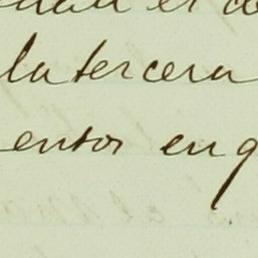 la tercera
entos en q